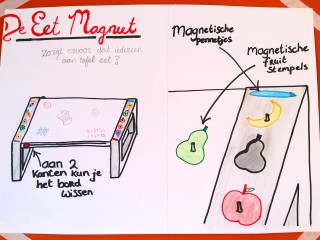 De Eet Magnut
Zorgt ervoor dat iedereen
aan tafel eet?
aan 2
Kanten kun je
het bord
wissen
Magnetische
pennetjes
Magnetische
fruit
stempels